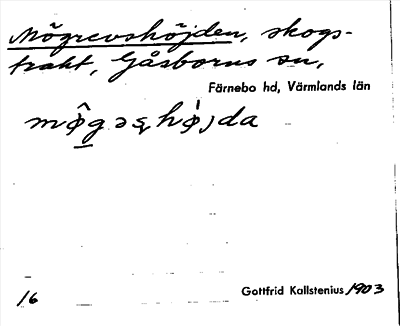 Mögrevshöjden, skogs-
trakt, Gåsborns sn,
Färnebo hd, Värmlands län
16
Gottfrid Kallstenius 1903